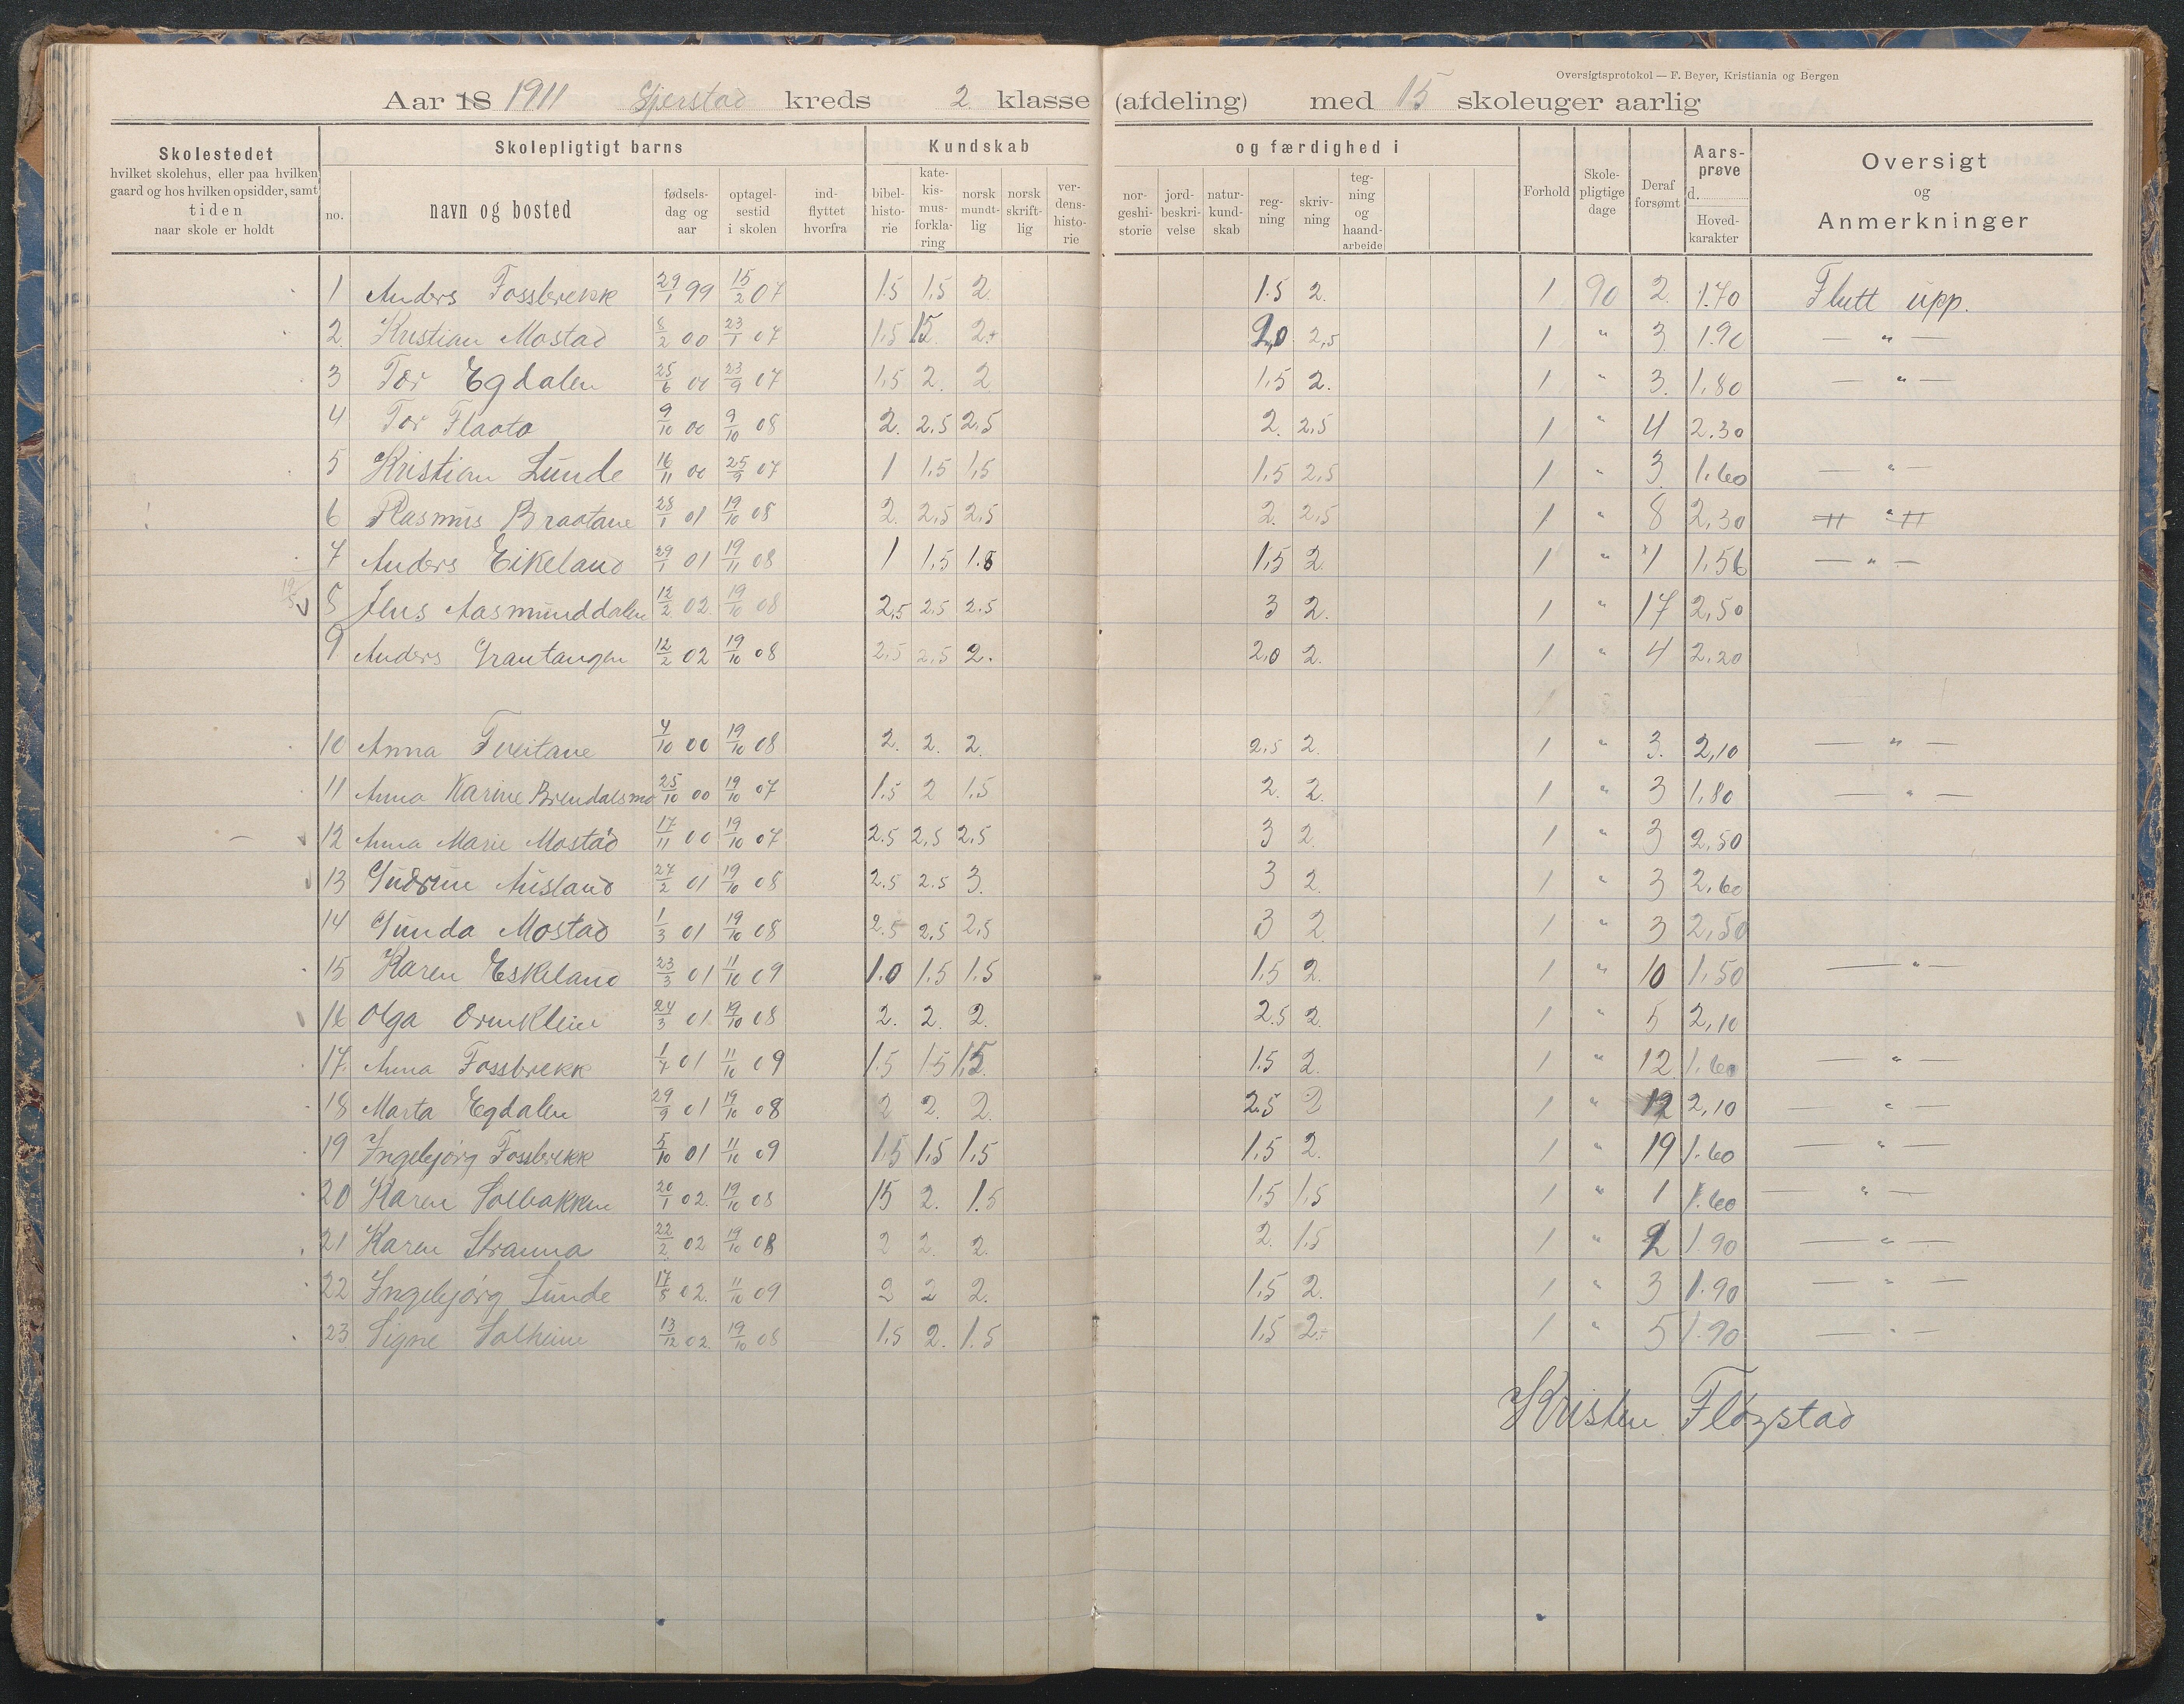 Oversigtsprotokol — F. Beyer, Kristiania og Bergen
Aar 18 1911 Gjerstad kreds 2. klasse (afdeling) med 15 skoleuger aarlig
Skolestedet hvilket skolehus, eller paa hvilken gaard og hos hvilken opsidder, samt tiden naar skole er holdt
Skolepligtigt barns
no. navn og bosted fødsels-dag og aar optagel-sestid i skolen ind-flyttet hvorfra
Kundskab og færdighed i
bibel-histo-rie kate-kis-mus-forkla-ring norsk mundt-lig norsk skrift-lig ver-dens-histo-rie nor-geshi-storie jord-beskri-velse natur-kund-skab reg-ning skriv-ning teg-ning og haand-arbeide
Forhold Skole-pligtige dage Deraf forsømt Aars-prøve d. Hoved-karakter
Oversigt og Anmerkninger
1 Anders Fossbrekk 29/1 99 15/2 07 1.5 1,5 2 1.5 2. 1 90 2. 1.70 Flutt upp.
2. Kristian Mostad 8/2 00 23/1 07 1,5 15. 2+ 2,0 2,5 1 " 3. 1.90 — " —
3 Tor Egdalen 25/6 00 23/9 07 1,5 2. 2 1,5 2. 1 " 3. 1,80 — " —
4 Tor Flaata 9/10 00 9/10 08 2. 2.5 2,5 2. 2,5 1 " 4 2.30
5 Kristian Lunde 16/11 00 25/9 07 1 1.5 1,5 1,5 2,5 1 " 3. 1.60 — " —
6 Rasmus Braatane 28/1 01 19/10 08 2. 2,5 2,5 2. 2,5 1 " 8 2,30 — " —
7 Anders Eikeland 29/1 01 19/11 08 1 1,5 1.8 1,5 2. 1 " 1 1,56 — " —
8 Jens Aasmunddalen 12/2 02. 19/10 08 2,5 2.5 2.5 3 2. 1 " 17 2,50
9 Anders Grautangen 12/2 02 19/10 08 2,5 2,5 2. 2,0 2. 1 " 4 2.20
10 Anna Tveitane 4/10 00 19/10 08 2. 2. 2. 2,5 2. 1 " 3. 2,10 — " —
11 Anna Karine Brendalsmo 25/10 00 19/10 07 1.5 2 1.5 2. 2. 1 " 3 1,80 — " —
12 Anna Marie Mostad 17/11 00 19/10 07 2.5 2,5 2,5 3 2. 1 " 3 2,50
13 Gudrun Ausland 27/2 01 19/10 08 2.5 2.5 3. 3 2. 1 " 3 2,60
14 Gunda Mostad 1/3 01 19/10 08 2.5 2,5 2,5 3 2. 1 " 3 2,50
15 Karen Eskeland 23/3 01 11/10 09 1.0 1.5 1.5 1,5 2. 1 " 10 1,50 — " —
16 Olga Ormkleiv 24/3 01 19/10 08 2. 2. 2. 2.5 2. 1 " 5 2,10
17. Anna Fossbrekk 1/7 01 11/10 09 1.5 1.5 1,5 1.5 2. 1 " 12 1.60 — " —
18 Marta Egdalen 29/9 01 19/10 08 2 2. 2. 2.5 2 1 " 12 2,10 — " —
19 Ingebjørg Fossbrekk 5/10 01 11/10 09 1.5 1,5 1,5 1,5 2. 1 " 19 1.60 — " —
20 Karen Solbakken 20/1 02. 19/10 08 15 2. 1.5 1,5 1,5 1 " 1 1.60 — " —
21 Karen Stranna 22/2 02 19/10 08 2 2. 2. 2. 1,5 1 " 2 1.90 — " —
22 Ingebjørg Lunde 17/8 02. 11/10 09 2 2 2. 1,5 2. 1 " 3 1.90 — " —
23 Signe Solheim 13/12 02. 19/10 08 1,5 2. 1.5 1,5 2. 1 " 5 1.90 — " —
Kristen Fløgstad